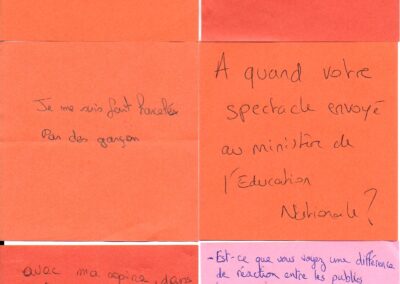 Je me suis fait harceler
Par des garçon
A quand votre
spectacle envoyé
au ministère de
l'Education
Nationale ?
avec ma copine, dans
- Est-ce que vous voyez une différence
de réaction entre les publics